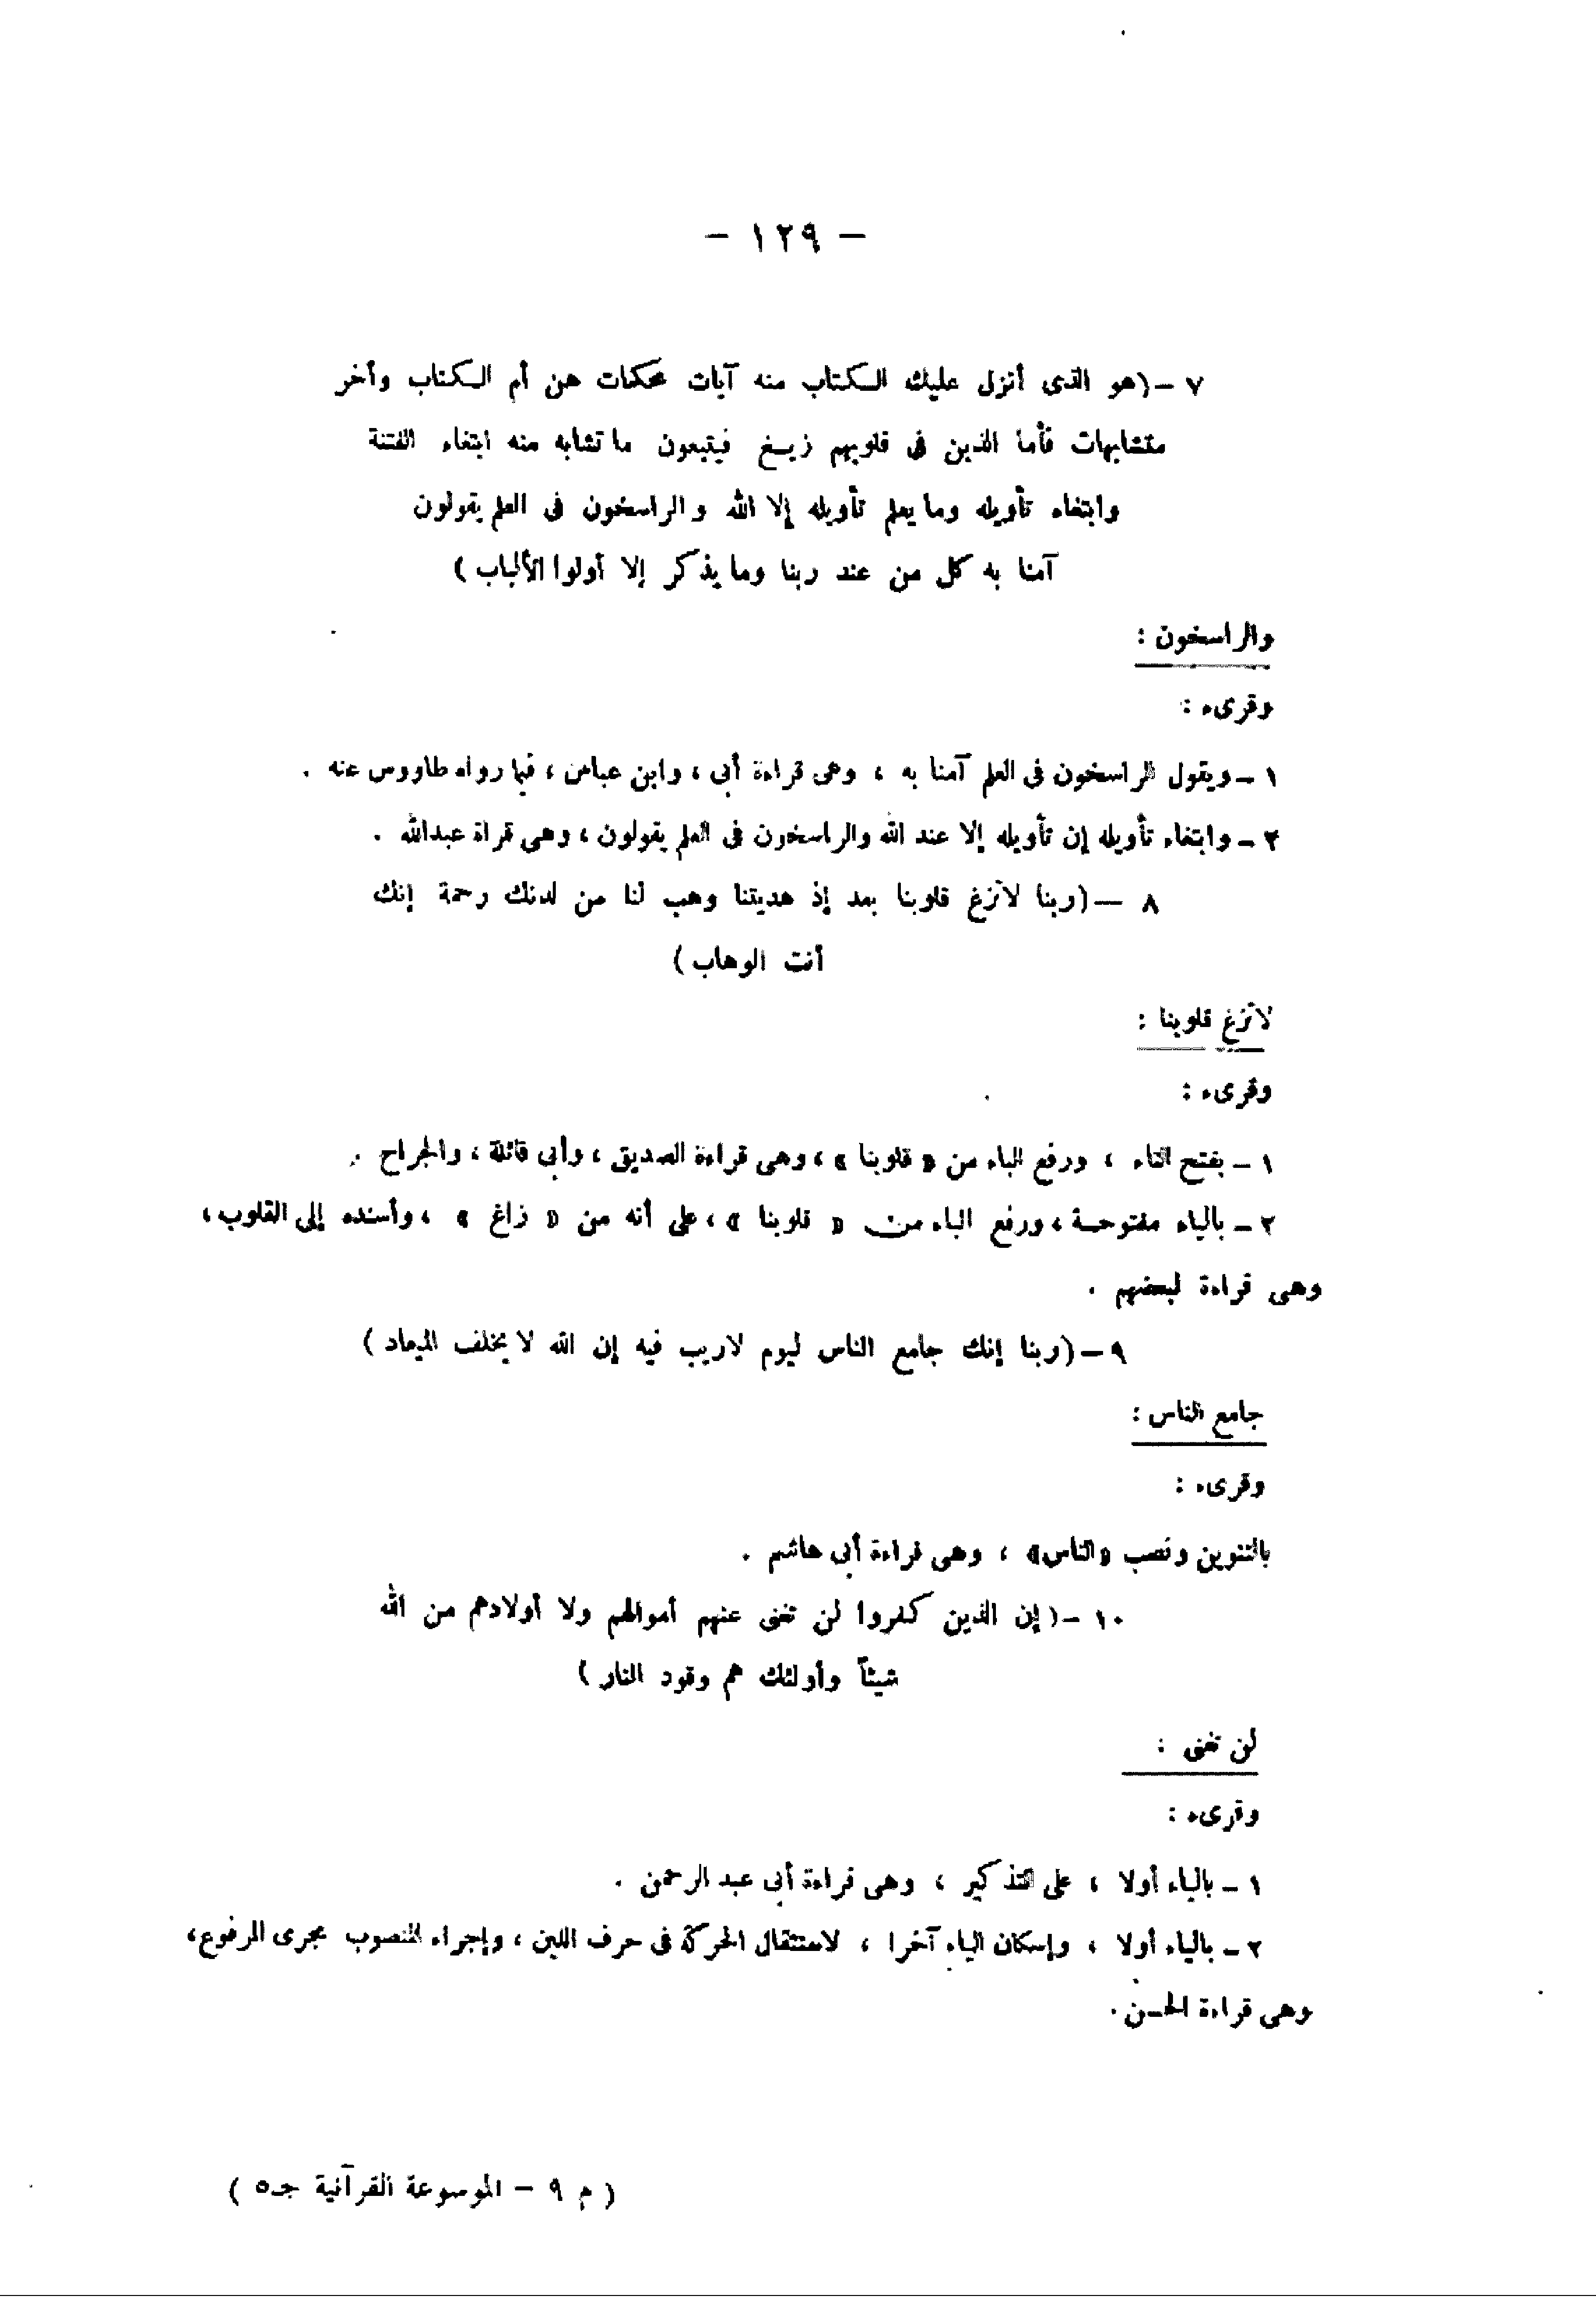 — ١٢٩ —
٧ — (هو الذى أنزل عليك الكتاب منه آيات محكمات هن أم الكتاب وأخر
متشابهات فأما الذين فى قلوبهم زيغ فيتبعون ما تشابه منه ابتغاء الفتنة
وابتغاء تأويله وما يعلم تأويله إلا الله والراسخون فى العلم يقولون
آمنا به كل من عند ربنا وما يذكر إلا أولوا الألباب )
والراسخون :
وقرىء :
١ — ويقول الراسخون فى العلم آمنا به ، وهى قراءة أبى ، وابن عباس ، فيما رواه طاووس عنه .
٢ — وابتغاء تأويله إن تأويله إلا عند الله والراسخون فى العلم يقولون ، وهى قراة عبدالله .
٨ — (ربنا لاتزغ قلوبنا بعد إذ هديتنا وهب لنا من لدنك رحمة إنك
أنت الوهاب )
لاتزغ قلوبنا :
وقرىء :
١ — بفتح التاء ، ورفع الباء من « قلوبنا » ، وهى قراءة الصديق ، وأبى قائلة ، والجراح .
٢ — بالياء مفتوحة ، ورفع الباء من « قلوبنا » ، على أنه من « زاغ » ، وأسنده إلى القلوب ،
وهى قراءة لبعضهم .
٩ — (ربنا إنك جامع الناس ليوم لاريب فيه إن الله لا يخلف الميعاد )
جامع الناس :
وقرىء :
بالتنوين ونصب «الناس» ، وهى قراءة أبى هاشم .
١٠ — ( إن الذين كفروا لن تغنى عنهم أموالهم ولا أولادهم من الله
شيئاً وأولئك هم وقود النار )
لن تغنى :
وقرىء :
١ — بالياء أولا ، على التذكير ، وهى قراءة أبى عبد الرحمن .
٢ — بالياء أولا ، وإسكان الياء آخرا ، لاستثقال الحركة فى حرف اللين ، وإجراء المنصوب مجرى المرفوع ،
وهى قراءة الحسن .
( م ٩ — الموسوعة القرآنية جـ٥ )